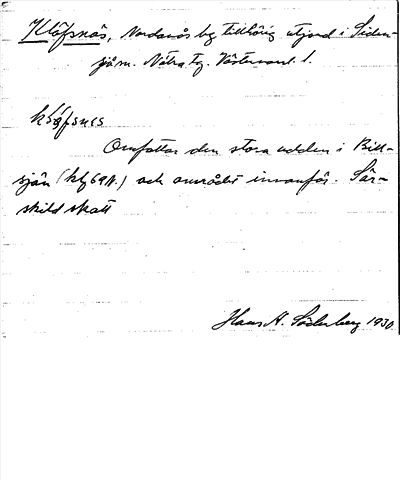 Klöfsnäs, Nordanås by tillhörig utjord i Siden-
sjö sn. Nätra tg. Västernorrl. l.
klǿfsnes
Omfattar den stora udden i Bill-
sjön (ktg 69 N.) och området innanför. Sär-
skild skatt
Hans H. Söderberg 1930